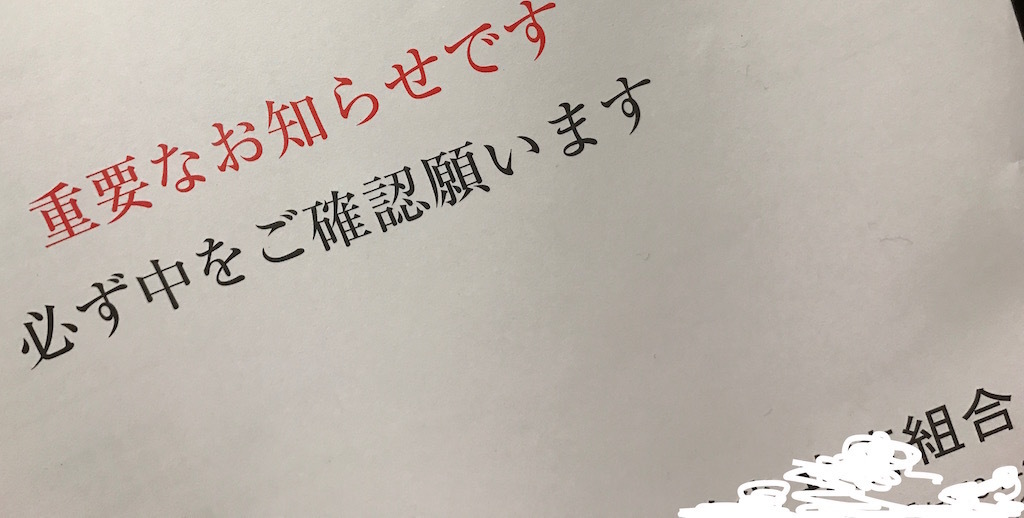 重要なお知らせです
必ず中をご確認願います
組合